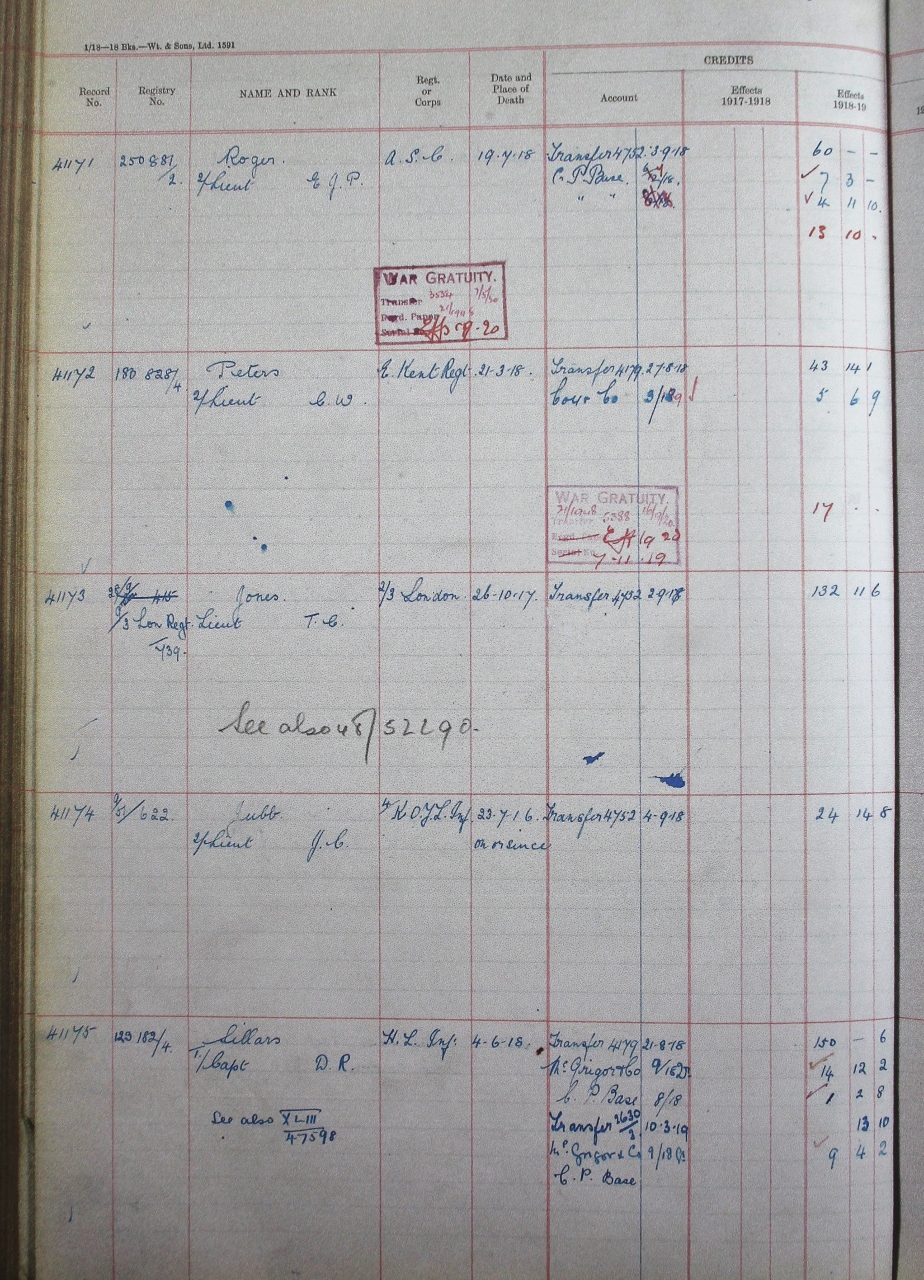 1/18—18 Bks.—Wt. & Sons, Ltd. 1591
CREDITS
Record No.
Registry No.
NAME AND RANK
Regt. or Corps
Date and Place of Death
Account
Effects 1917-1918
Effects 1918-19
41171 250881/2. Roger. A.S.C. 19.7.18 Transfer 4752. 3.9.18 60 - -
2/Lieut E J. P. C. P. Base. 7 3 -
" " 4 11 10.
13 10 -
WAR GRATUITY.
Transfer 3534 7/5/20
Regd. Paper
Serial No.
41172 180 828/4. Peters E. Kent Regt. 21-3-18. Transfer 4179. 27-8-18 43 14 1
2/Lieut C. W. Cox & Co 5 6 9
WAR GRATUITY.
21/1948 5388 16/9/20
Transfer
Serial No.
7-11-19
17 . .
41173 Jones. 2/3 London. 26-10-17. Transfer 4752 2-9-18 132 11 6
9/3 Lon Regt. Lieut T. C.
/739.
See also 48/52290.
41174 9/51/622. Jubb. 4/ K.O.Y.L. Inf. 23-7-16. Transfer 4752 4-9-18 24 14 8
2/Lieut J. C. on or since
41175 123 182/4. Sillars H. L. Inf: 4-6-18. Transfer 4179 21-8-18 150 - 6
T/Capt D. R. McGrigor & Co 14 12 2
C. P. Base 8/18 1 2 8
See also XLIII Transfer 2630/3 10-3-19 13 10
47598 McGrigor & Co 9 4 2
C. P. Base